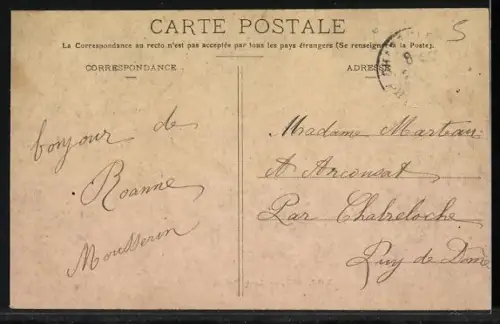 CARTE POSTALE
La Correspondance au recto n'est pas acceptée par tous les pays étrangers (Se renseigner à la Poste).
CORRESPONDANCE
ADRESSE
5
bonjour de
Roanne
Mousserin
Madame Marteau
A Arconsat
Par Chabreloche
Puy de Dôme